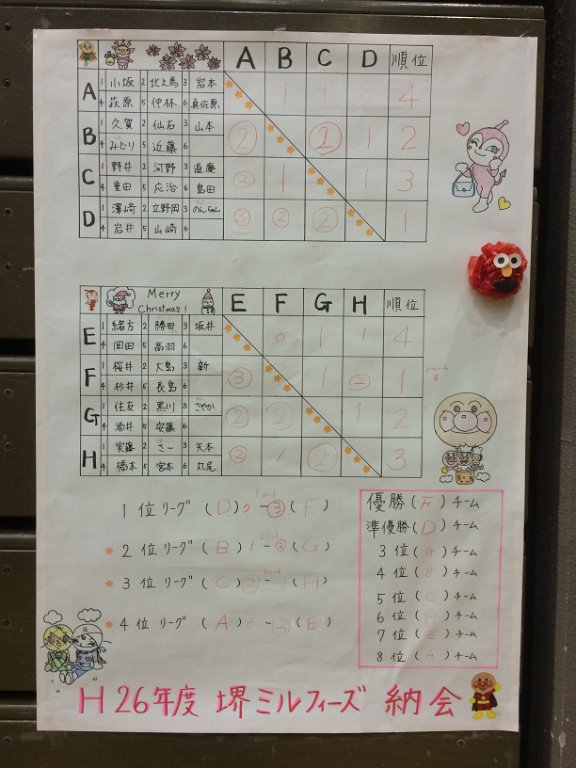 A B C D 順位
A 1 小坂 2 北久馬 3 岩本 1 1 4
4 萩原 5 仲林 6 真佐原
B 1 久賀 2 仙石 3 山本 ② ② 1 2
4 みどり 5 近藤 6
C 1 野井 2 河野 3 道慶 ② 1 1 3
4 重田 5 応治 6 島田
D 1 澤﨑 2 立野岡 3 ③ ② ② 1
4 岩井 5 山崎 6
Merry
Christmas!
E F G H 順位
E 1 緒方 2 勝田 3 坂井 0 1 1 4
4 岡田 5 高羽 6
F 1 桜井 2 大島 3 新 ③ 1 ② 1
4 杉井 5 長島 6
G 1 住友 2 黒川 3 さやか ② ② 1 2
4 酒井 5 安藤 6
H 1 実藤 2 さー 3 矢本 ② 1 ② 3
4 橋本 5 宮本 6 丸尾
1位リーグ (D) 0-③ (F)
2位リーグ (B) 1-② (G)
3位リーグ (C) ②-1 (H)
4位リーグ (A) 0-② (E)
優勝(F)チーム
準優勝(D)チーム
3位(G)チーム
4位(B)チーム
5位(C)チーム
6位(H)チーム
7位(E)チーム
8位(A)チーム
H26年度 堺ミルフィーズ 納会